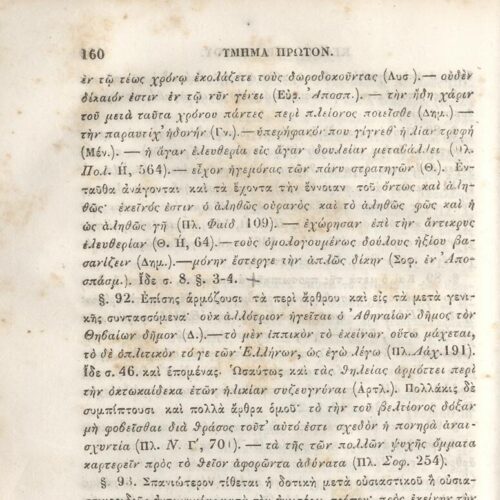 160 ΤΜΗΜΑ ΠΡΩΤΟΝ.
ἐν τῷ τέως χρόνῳ ἐκολάζετε τοὺς δωροδοκοῦντας (Λυσ ).— οὐδὲν
δίκαιόν ἐστιν ἐν τῷ νῦν γένει (Εὐρ. Ἀποσπ.). — τὴν ἤδη χάριν
τοῦ μετὰ ταῦτα χρόνου πάντες περὶ πλείονος ποιεῖσθε (Δημ.) —
τὴν παραυτίχ' ἡδονήν (Γν.). —ὑπερήφανόν που γίγνεθ' ἡ λίαν τρυφή
(Μέν.). — ἡ ἄγαν ἐλευθερία εἰς ἄγαν δουλείαν μεταβάλλει (Πλ.
Πολ. Η, 564). — εἶχον ἡγεμόνας τῶν πάνυ στρατηγῶν (Θ.). Ἐν-
ταῦθα ἀνάγονται καὶ τὰ ἔχοντα τὴν ἔννοιαν τοῦ ὄντως καὶ ἀλη-
θῶς· ἐκεῖνός ἐστιν ὁ ἀληθῶς οὐρανὸς καὶ τὸ ἀληθῶς φῶς καὶ ἡ
ὡς ἀληθῶς γῆ (Πλ. Φαίδ. 109). — ἐχώρησαν ἐπὶ τὴν ἄντικρυς
ἐλευθερίαν (Θ. Η, 64). — τοὺς ὁμολογουμένως δούλους ἠξίου βα-
σανίζειν (Δημ.).—μόνην ἔστεργε τὴν ἁπλῶς δίκην (Σοφ. ἐν Ἀπο-
σπάσμ.). Ἴδε σ. 8. §. 3-4.
§. 92. Ἐπίσης ἁρμόζουσι τὰ περὶ ἄρθρου καὶ εἰς τὰ μετὰ γενι-
κῆς συντασσόμενα· οὐκ ἀλλότριον ἡγεῖται ὁ Ἀθηναίων δῆμος τὸν
Θηβαίων δῆμον (Δ.).—τὸ μὲν ἱππικὸν τὸ ἐκείνων οὕτω μάχεται,
τὸ δὲ ὁπλιτικὸν τό γε τῶν Ἑλλήνων, ὡς ἐγὼ λέγω (Πλ. Λάχ. 191).
Ἴδε σ. 46. καὶ ἑπομένας. Ὡσαύτως καὶ τὰς θηλείας ἁρμόττει περὶ
τὴν ὀκτωκαίδεκα ἐτῶν ἡλικίαν συζευγνύναι (Ἀρτλ.). Πολλάκις δὲ
συμπίπτουσι καὶ πολλὰ ἄρθρα ὁμοῦ· τὸ τὴν τοῦ βελτίονος δόξαν
μὴ φοβεῖσθαι διὰ θράσος τοῦτ' αὐτό ἐστι σχεδὸν ἡ πονηρὰ ἀναι-
σχυντία (Πλ. Ν. Γ', 701). — τὰ τῆς τῶν πολλῶν ψυχῆς ὄμματα
καρτερεῖν πρὸς τὸ θεῖον ἀφορῶντα ἀδύνατα (Πλ. Σοφ. 254).
§. 93. Σπανιώτερον τίθεται ἡ δοτικὴ μετὰ οὐσιαστικοῦ ἢ οὐσια-